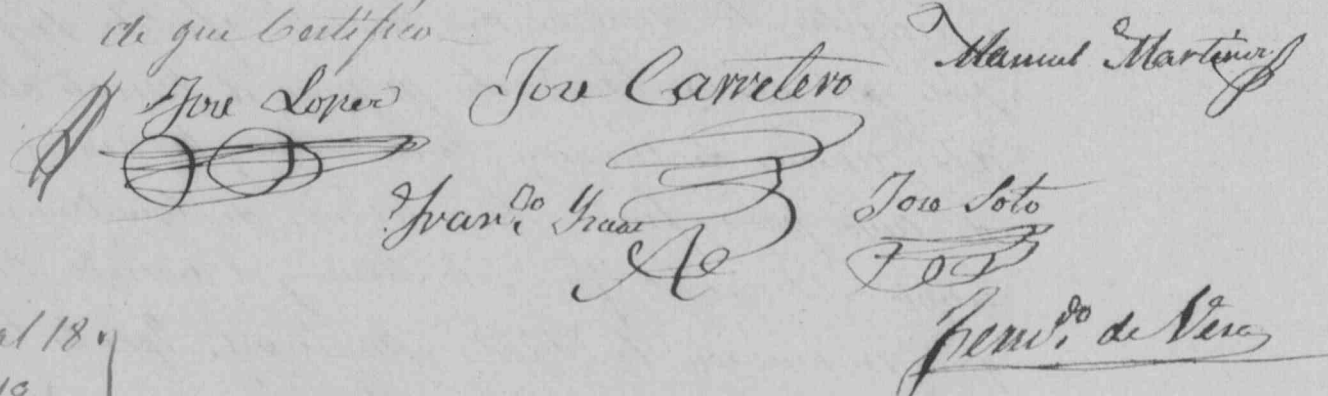 de que Certifico
Jose Lopez
Jose Carretero
Manuel Martinez
Fran.do
Jose Soto
Fern.do de Vera
al 18